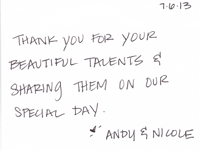 7.6.13
THANK YOU FOR YOUR
BEAUTIFUL TALENTS &
SHARING THEM ON OUR
SPECIAL DAY.
ANDY & NICOLE